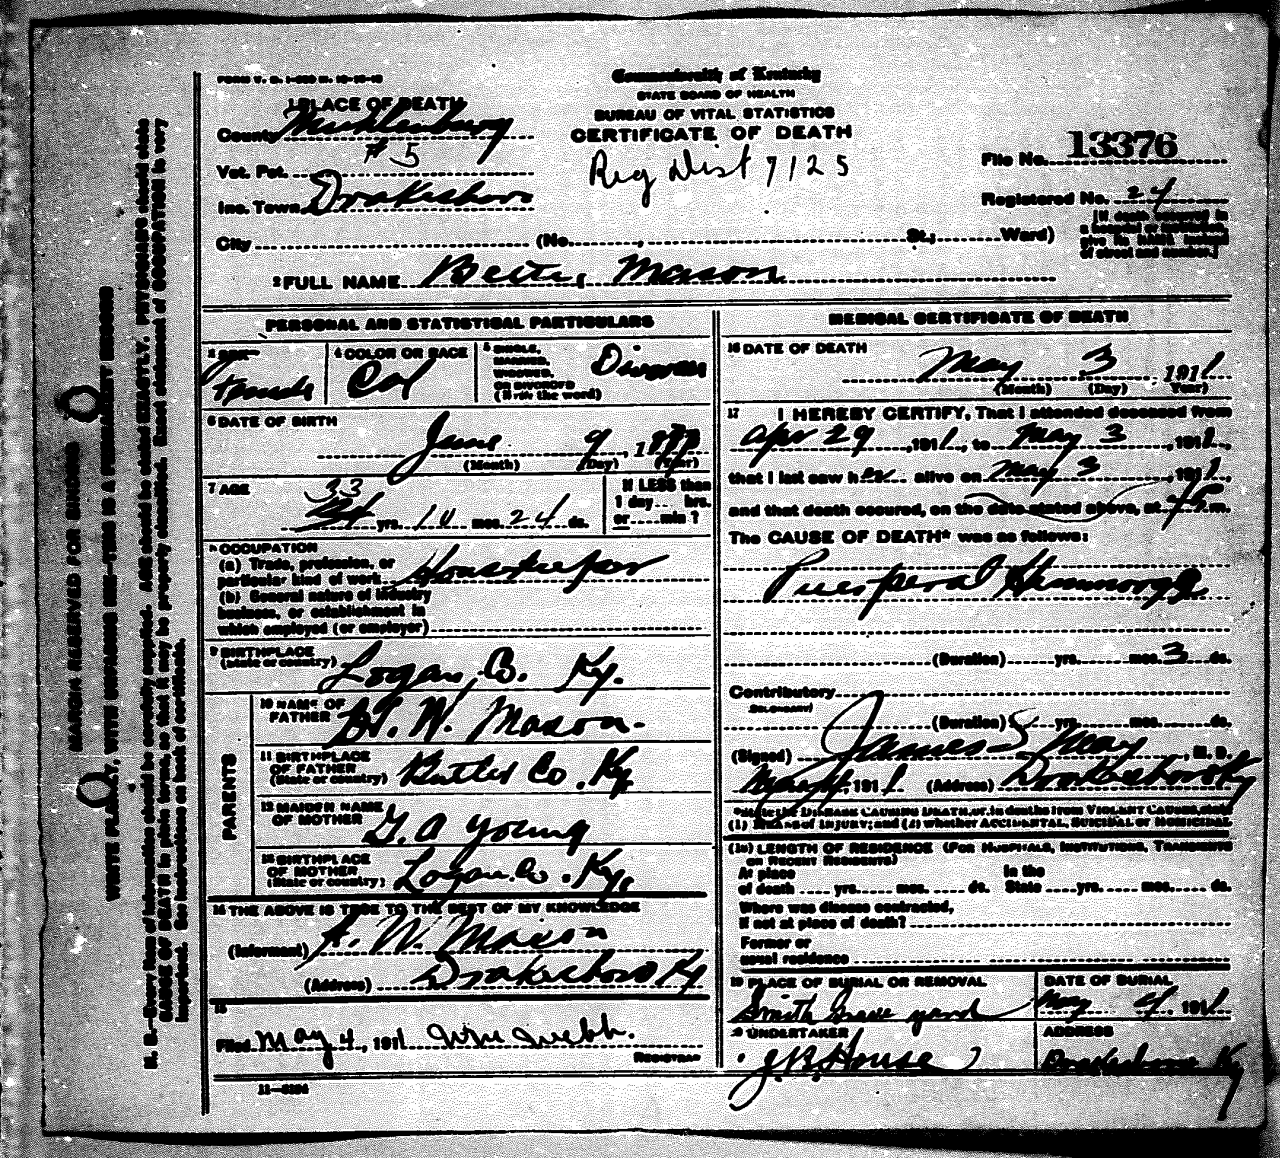 FORM V. S. 1-
Commonwealth of Kentucky
STATE BOARD OF HEALTH
BUREAU OF VITAL STATISTICS
CERTIFICATE OF DEATH
Reg Dist 7125
1 PLACE OF DEATH
County Muhlenburg
Vot. Pct. #5
Inc. Town Drakesboro
City (No. , St.; Ward)
File No. 13376
Registered No. 24
[If death occurred in
a hospital or institution,
give its NAME instead
of street and number.]
2 FULL NAME Mason
PERSONAL AND STATISTICAL PARTICULARS
3 SEX Female
4 COLOR OR RACE Col
5 SINGLE,
MARRIED,
WIDOWED,
OR DIVORCED
(Write the word)
6 DATE OF BIRTH
June 9, 1
(Month) (Day) (Year)
7 AGE
33 yrs. 10 mos. 24 ds.
If LESS than
1 day hrs.
or min ?
8 OCCUPATION
(a) Trade, profession, or
particular kind of work Housekeeper
(b) General nature of industry
business, or establishment in
which employed (or employer)
9 BIRTHPLACE
(State or country) Logan Co. Ky.
PARENTS
10 NAME OF
FATHER W. Mason
11 BIRTHPLACE
OF FATHER
(State or country) Butler Co. Ky
12 MAIDEN NAME
OF MOTHER G. A Young
13 BIRTHPLACE
OF MOTHER
(State or country) Logan. Co. Ky.
14 THE ABOVE IS TRUE TO THE BEST OF MY KNOWLEDGE
(Informant) W. Mason
(Address) Drakesboro Ky
15
Filed May 4, 1911 Wm Webb.
REGISTRAR
11-
MEDICAL CERTIFICATE OF DEATH
16 DATE OF DEATH
May 3 1911
(Month) (Day) (Year)
17 I HEREBY CERTIFY, That I attended deceased from
Apr 29, 1911, to May 3, 1911,
that I last saw her alive on May 3, 1911,
and that death occured, on the date stated above, at m.
The CAUSE OF DEATH* was as follows:
Puerperal Hemmorage
(Duration) yrs. mos. 3 ds.
Contributory
SECONDARY
(Duration) yrs. mos. ds.
(Signed) James S May, M. D.
1911 (Address) Drakesboro Ky
*State the DISEASE CAUSING DEATH, or, in deaths from VIOLENT CAUSES, state
(1) MEANS OF INJURY; and (2) whether ACCIDENTAL, SUICIDAL or HOMICIDAL
LENGTH OF RESIDENCE (FOR HOSPITALS, INSTITUTIONS, TRANSIENTS
OR RECENT RESIDENTS)
At place In the
of death yrs. mos. ds. State yrs. mos. ds.
Where was disease contracted,
if not at place of death?
Former or
usual residence
19 PLACE OF BURIAL OR REMOVAL
Smith Grave yard
DATE OF BURIAL
May 4, 1911
UNDERTAKER
J. B. House
ADDRESS
Drakesboro Ky
MARGIN RESERVED FOR BINDING
WRITE PLAINLY, WITH UNFADING INK—THIS IS A PERMANENT RECORD
N. B.—Every item of information should be carefully supplied. AGE should be stated EXACTLY. PHYSICIANS should state
CAUSE OF DEATH in plain terms, so that it may be properly classified. Exact statement of OCCUPATION is very
important. See instructions on back of certificate.